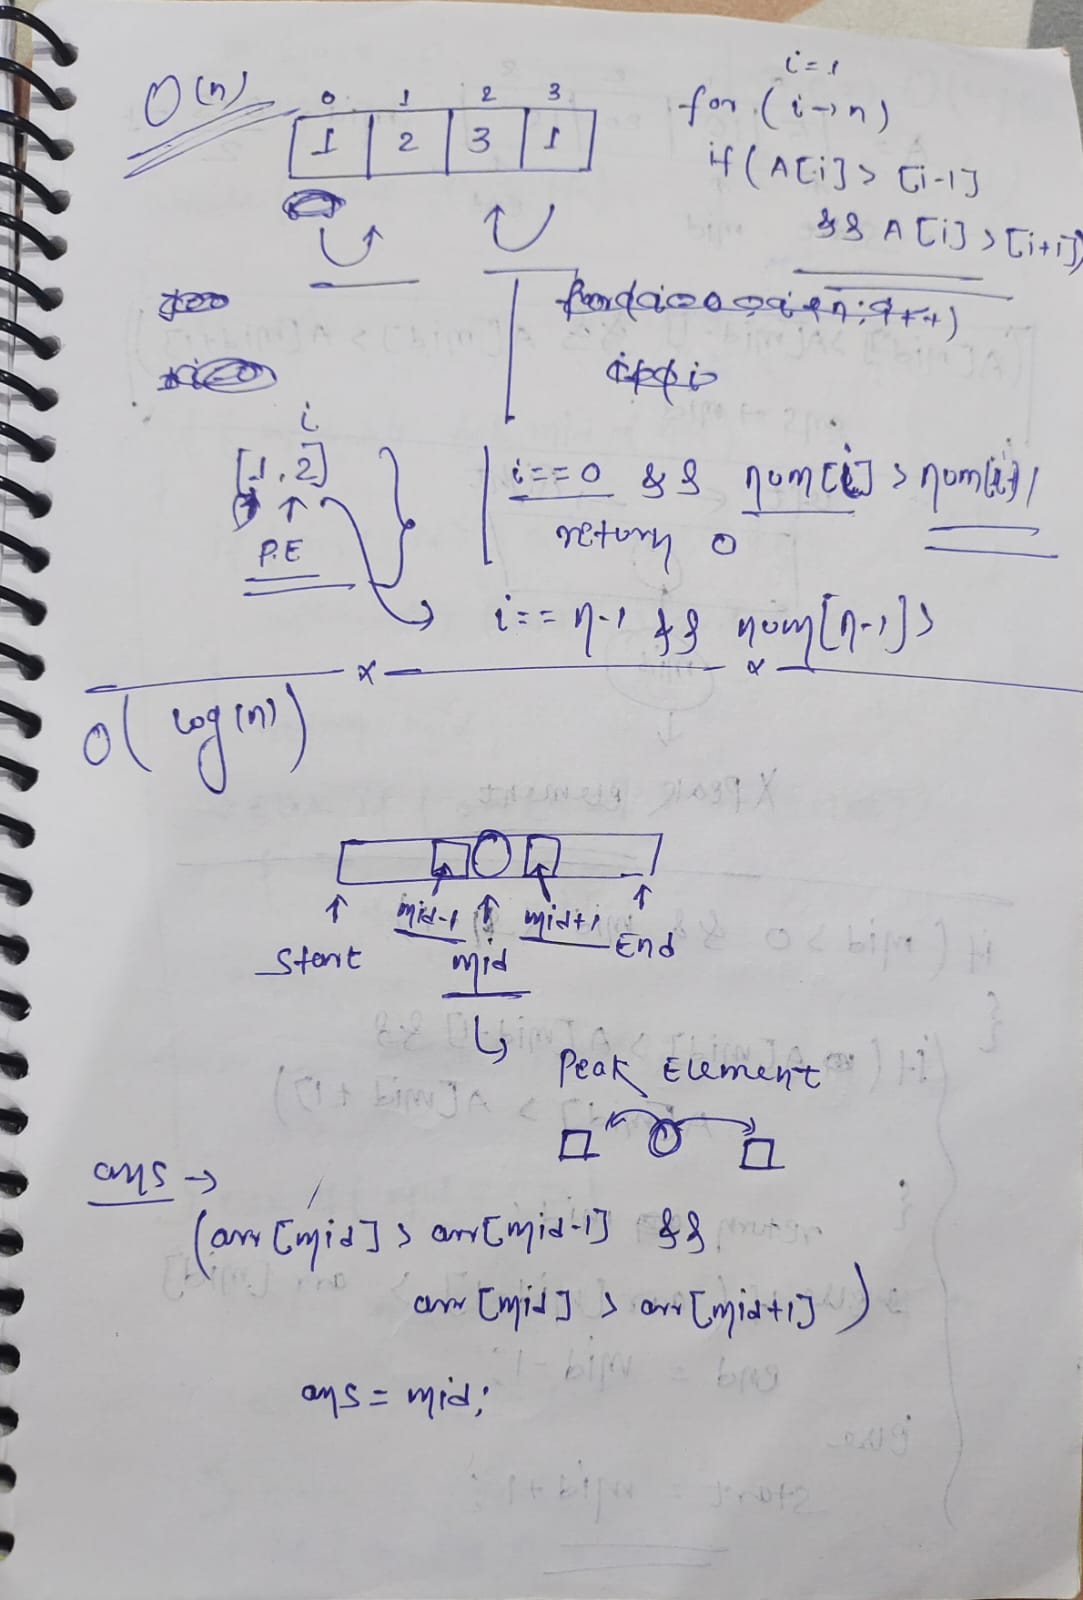 O(n)
0 1 2 3
1 2 3 1
i=1
for (i→n)
if (A[i] > [i-1]
&& A[i] > [i+i])
i
[1,2]
P.E
i==0 && num[i] > num[i+1
return 0
i== n-1 && num[n-1] >
x x
O(log(n))
mid-1 mid+1
Start mid End
Peak Element
ans →
(arr[mid] > arr[mid-1] &&
arr[mid] > arr[mid+1])
ans = mid;